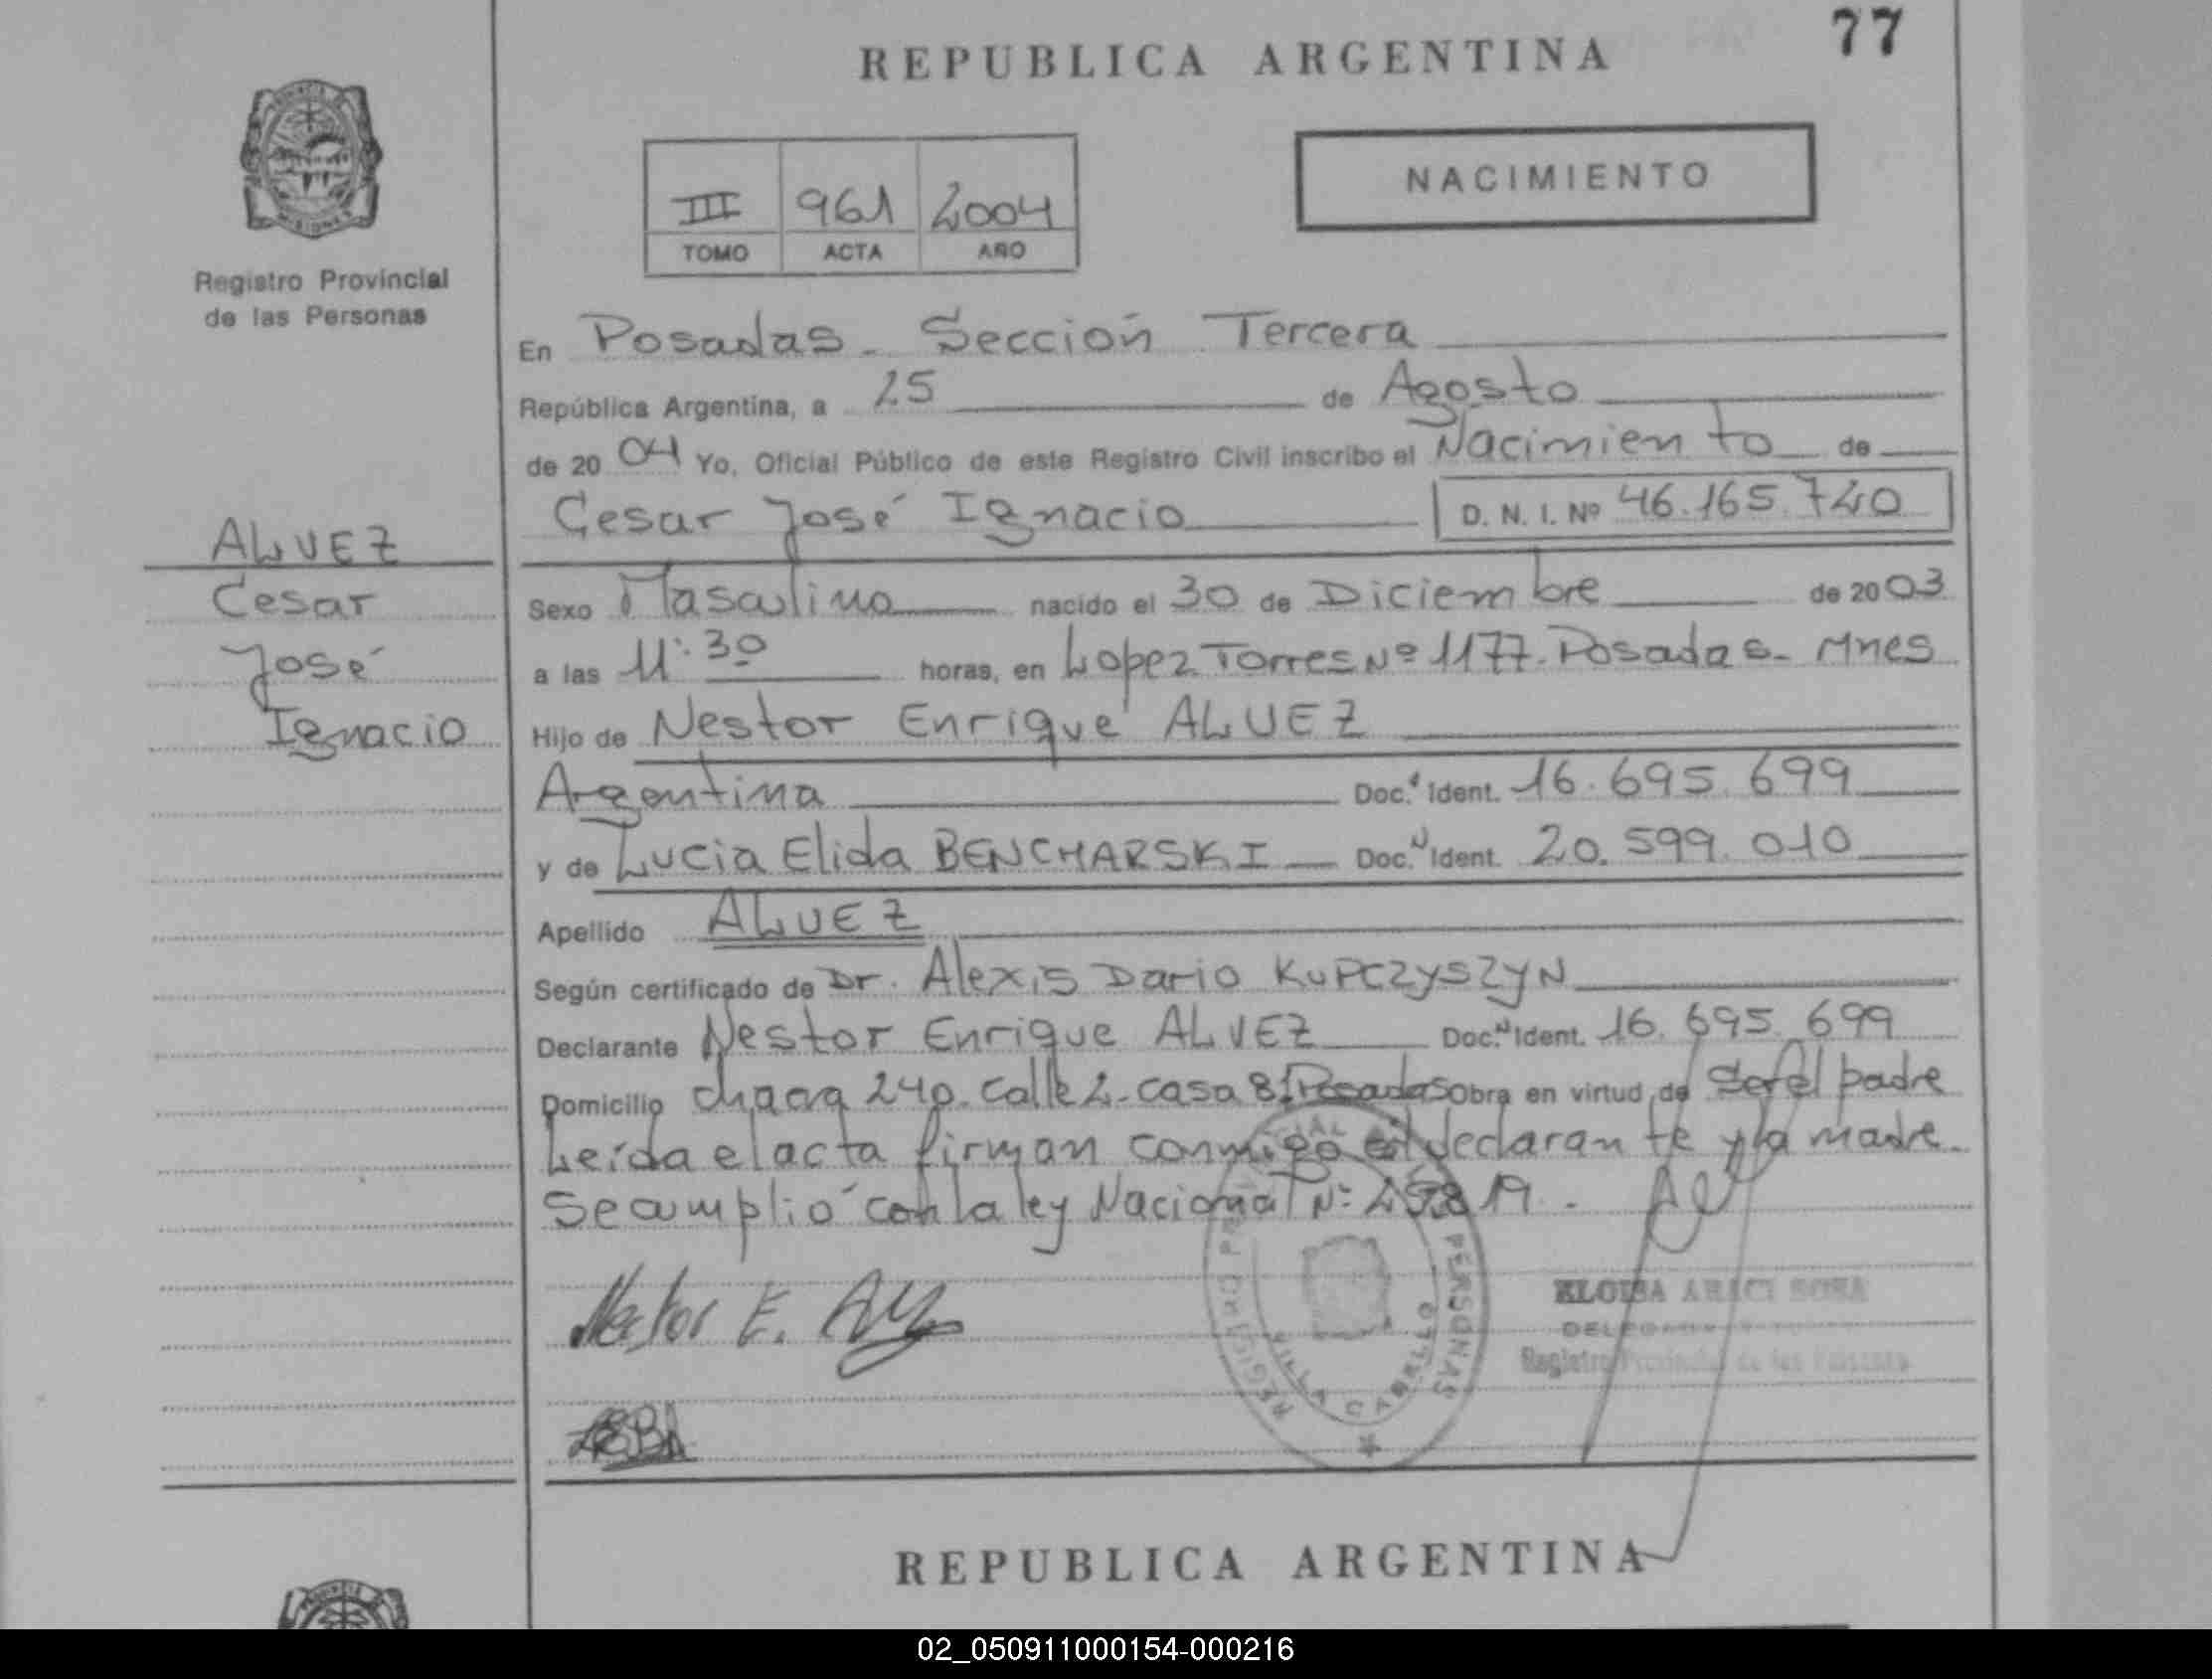 77
REPUBLICA ARGENTINA
NACIMIENTO
III 961 2004
TOMO ACTA AÑO
Registro Provincial
de las Personas
ALVEZ
Cesar
José
Ignacio
En Posadas - Sección Tercera
República Argentina, a 25 de Agosto
de 2004 Yo, Oficial Público de este Registro Civil inscribo el Nacimiento de
Cesar José Ignacio D. N. I. Nº 46.165.740
Sexo Masculino nacido el 30 de Diciembre de 2003
a las 11:30 horas, en Lopez Torres Nº 1177. Posadas - Mnes
Hijo de Nestor Enrique ALVEZ
Argentina Doc. Ident. 16.695.699
y de Lucia Elida BENCHARSKI Doc. Ident. 20.599.010
Apellido ALVEZ
Según certificado de Dr. Alexis Dario KUPCZYSZYN
Declarante Nestor Enrique ALVEZ Doc. Ident. 16.695.699
Domicilio chacra 240. Calle 2. Casa 81 Posadas Obra en virtud de Ser el padre
Leída el acta firman conmigo el declarante y la madre.
Se cumplió con la ley Nacional Nº
Nestor E.
REGISTRO PERSONAS
VILLA CABELLO
ELOISA ARACI SOSA
Registro Provincial de las Personas
REPUBLICA ARGENTINA
02_050911000154-000216